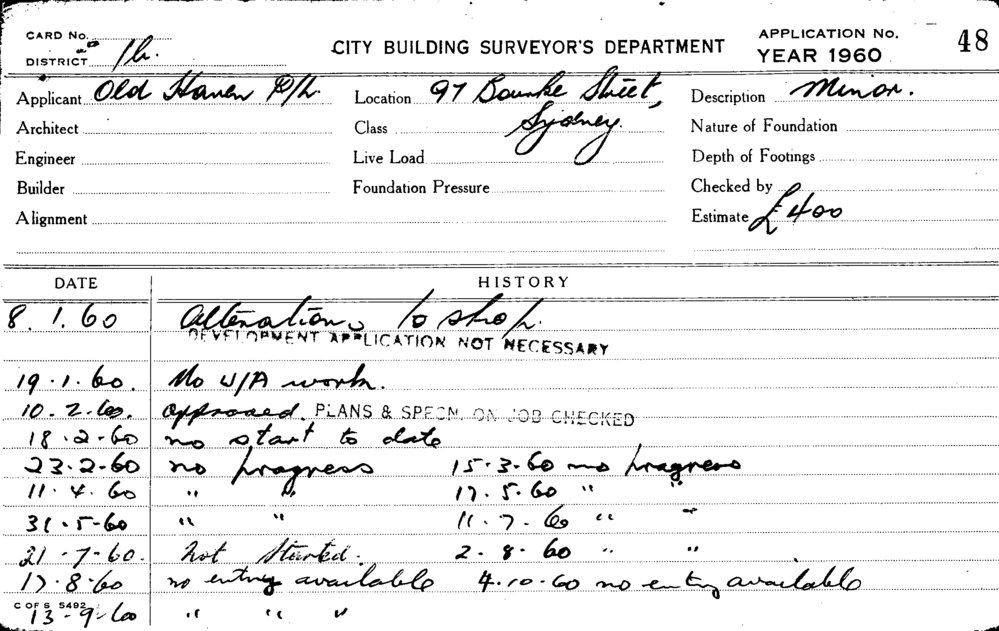 CARD No.
DISTRICT 1b.
CITY BUILDING SURVEYOR'S DEPARTMENT
APPLICATION No.
YEAR 1960
48
Applicant Old Haven P/L. Location 97 Bourke Street, Description Minor.
Architect Class Sydney. Nature of Foundation
Engineer Live Load Depth of Footings
Builder Foundation Pressure Checked by
Alignment Estimate £400
DATE HISTORY
8.1.60 Alterations to shop.
DEVELOPMENT APPLICATION NOT NECESSARY
19.1.60. No U/A work.
10.2.60. Approved. PLANS & SPECN. ON JOB CHECKED
18.2.60 no start to date
23.2.60 no progress 15.3.60 no progress
11.4.60 " " 17.5.60 " "
31.5-60 " " 11.7.60 " "
21.7.60. Not Started. 2.8.60 " "
17.8.60 no entry available 4.10.60 no entry available
C OF S 5492
13-9-60 " " "